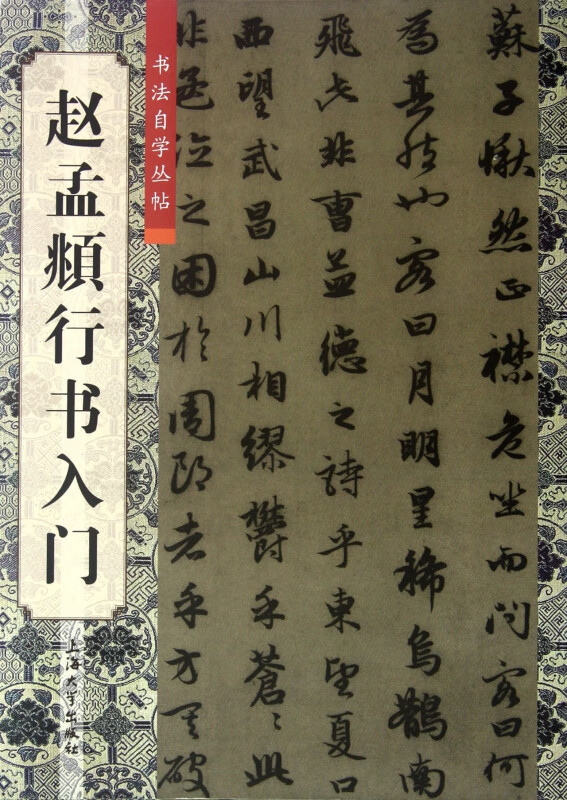 书法自学丛帖
赵孟頫行书入门
上海大学出版社
蘇子愀然正襟危坐而問客曰何
為其然也客曰月明星稀烏鵲南
飛此非曹孟德之詩乎東望夏口
西望武昌山川相繆鬱乎蒼〻此
非孟德之困於周郎者乎方其破